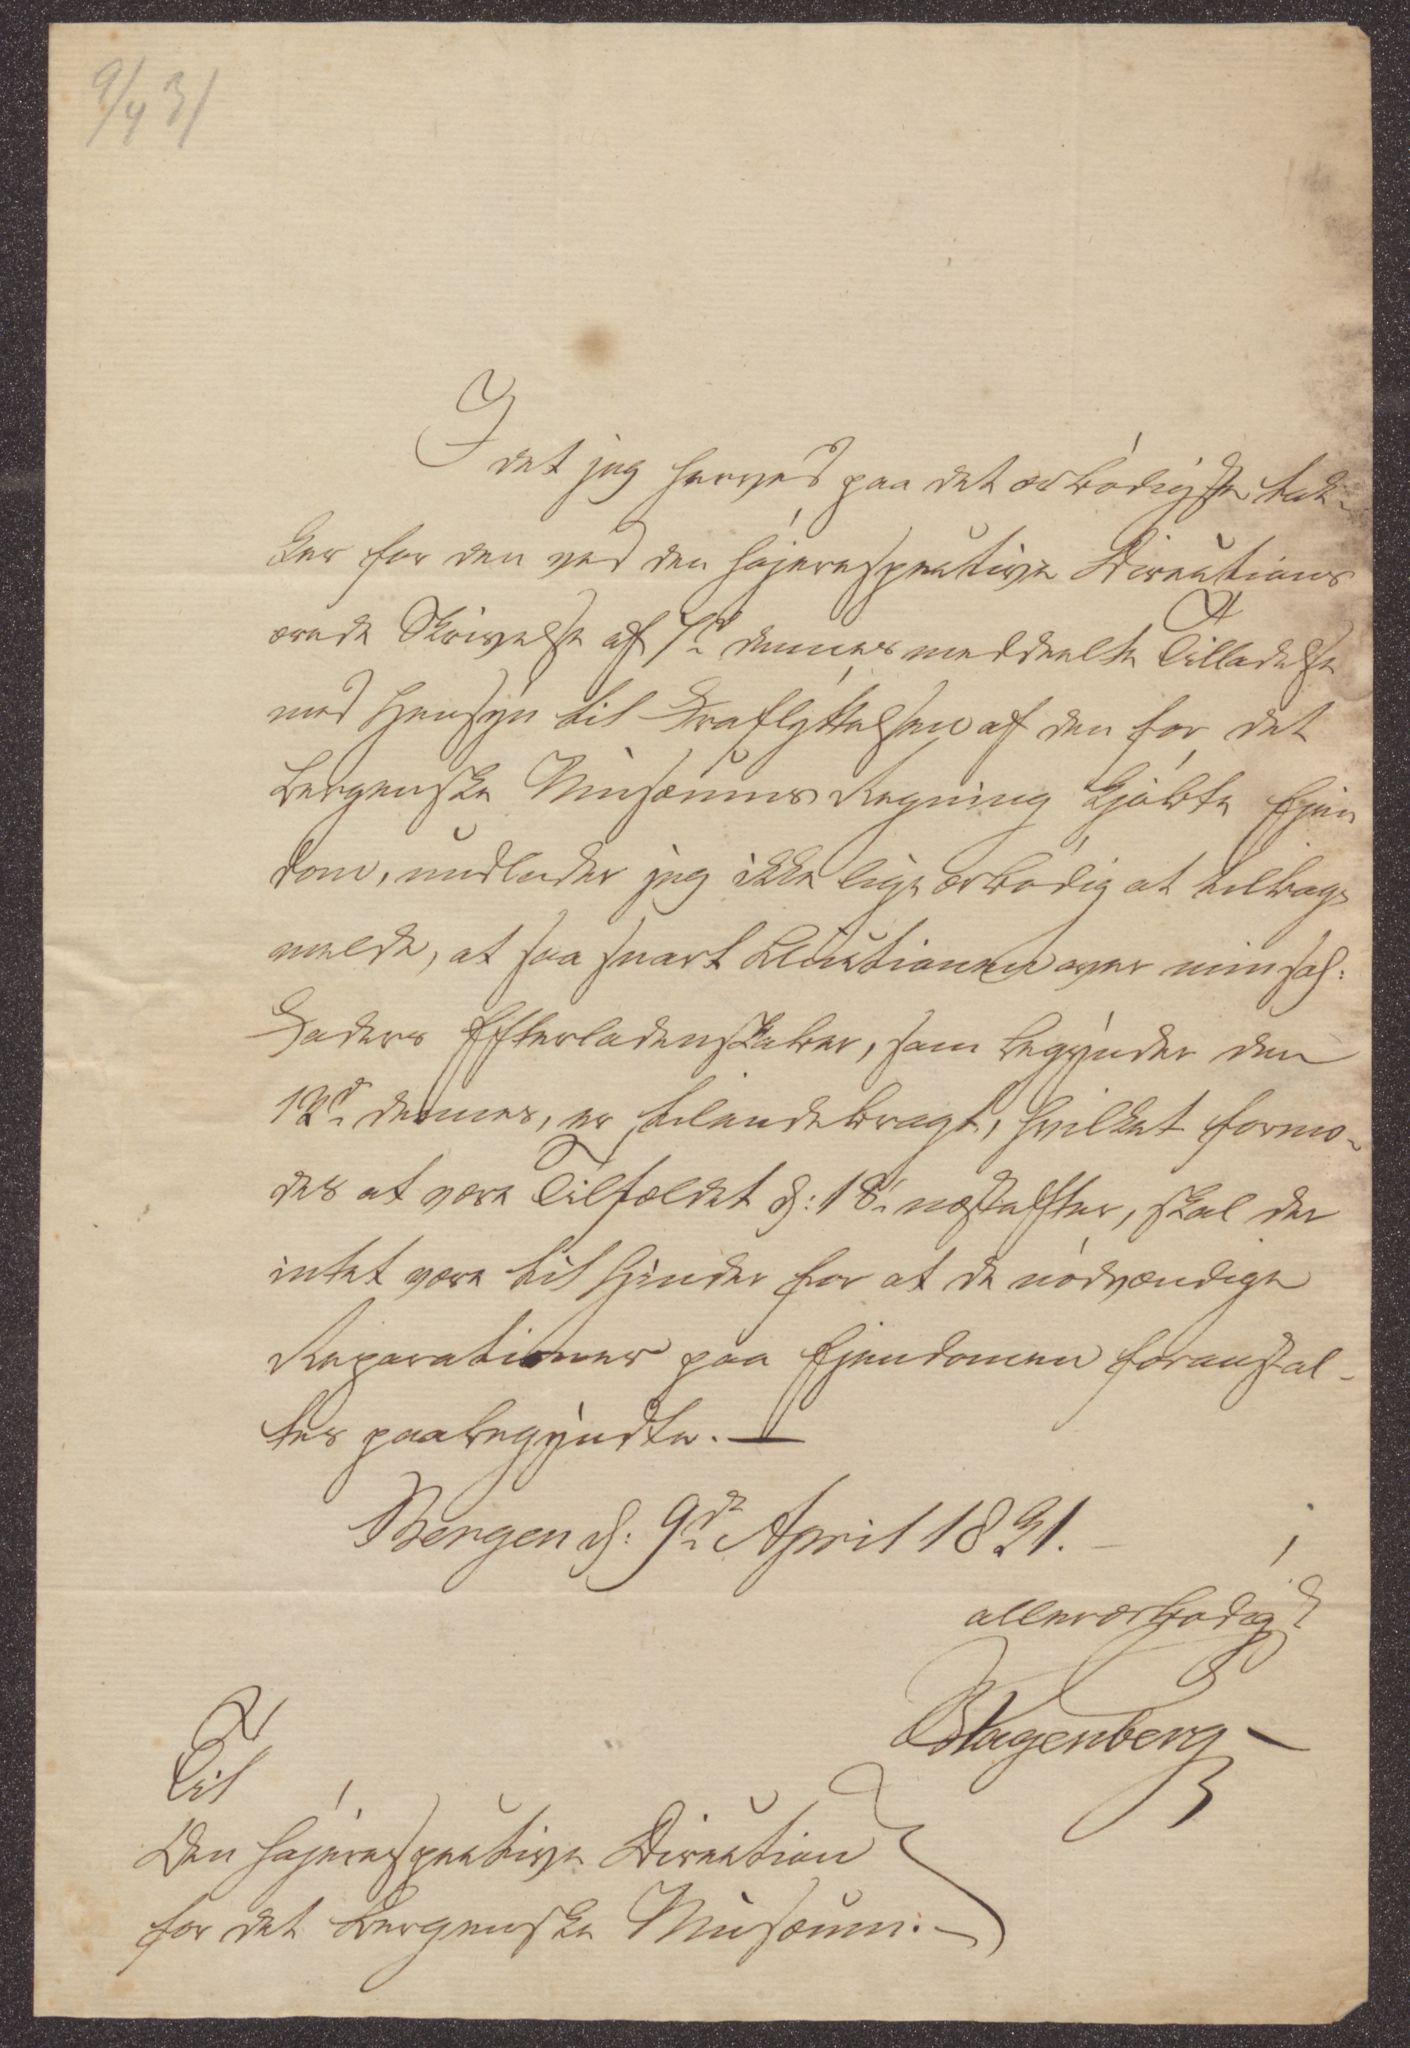 9/4 31
I det jeg herved paa det ærbødigste tak-
ker for den ved den højerespective Directions
ærede Skrivelse af 7d. dennes meddeelte Tilladelse
med Hensyn til Fraflyttelsen af den for det
bergenske Musæums Regning kjøbte Ejen
dom, undlader jeg ikke lige ærbødig at tilbage
melde, at saa snart Auctionen over min sal:
Faders Efterladenskaber, som begynder den
12d. dennes, er tilendebragt, hvilket formo-
des at være Tilfældet d: 18. næstefter, skal der
intet være til Hinder for at de nødvændige
Reparationer paa Ejendomen foranstal-
tes paabegyndte. —
Bergen d: 9de April 1831. –
allerærbødigst
Hagenberg
Til
Den højerespective Direction
for det bergenske Musæum. –